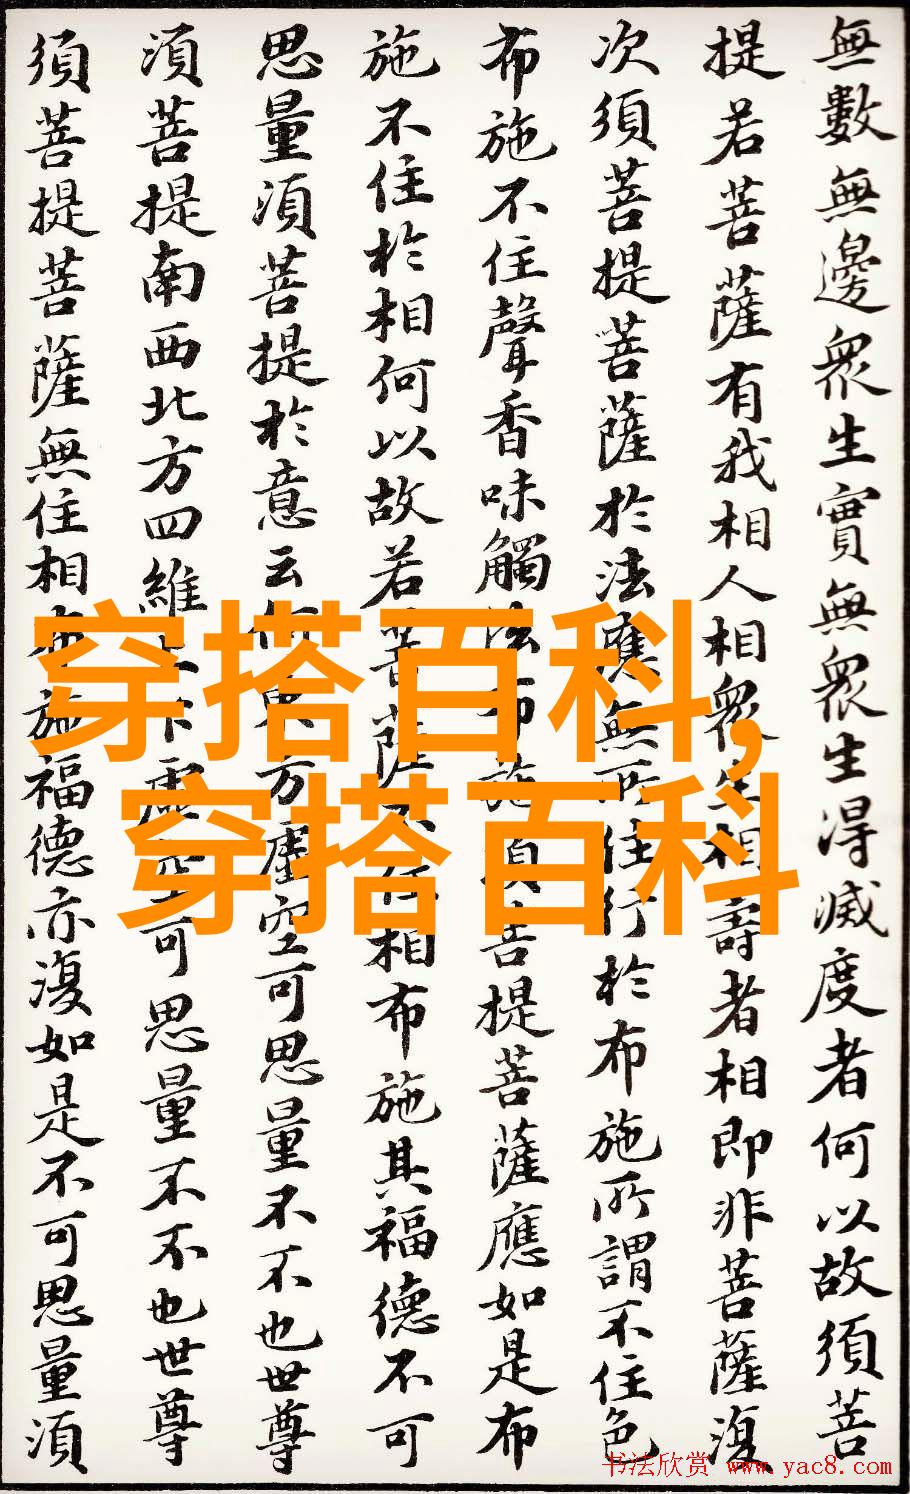 無數無邊衆生實無衆生得滅度者何以故須菩
提若菩薩有我相人相衆生相壽者相即非菩薩復
次須菩提菩薩於法應無所住行於布施所謂不住色
布施不住聲香味觸法布施須菩提菩薩應如是布
施不住於相何以故若菩薩不住相布施其福德不可
思量須菩提於意云何東方虛空可思量不不也世尊
須菩提南西北方四維上下虛空可思量不不也世尊
須菩提菩薩無住相布施福德亦復如是不可思量須
穿搭百科,
穿搭百科
书法欣赏 www.yac8.com